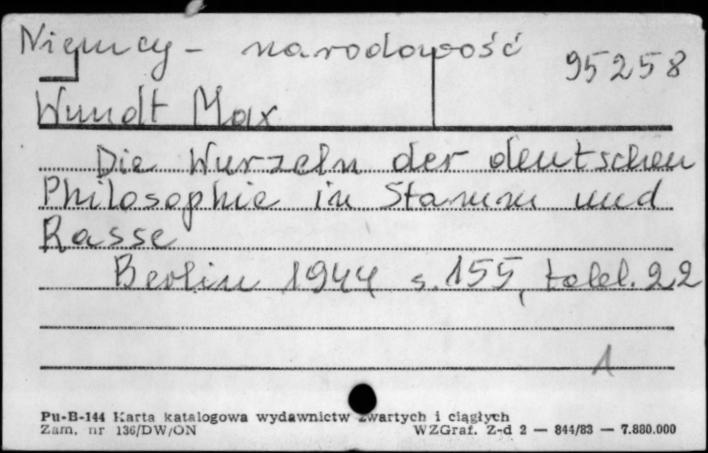 Niemcy - narodowość
95258
Wundt Max
Die Wurzeln der deutschen
Philosophie in Stamm und
Rasse
Berlin 1944 s. 155, tabl. 22
1
Pu-B-144 Karta katalogowa wydawnictw zwartych i ciągłych
Zam. nr 136/DW/ON WZGraf. Z-d 2 — 844/83 — 7.880.000